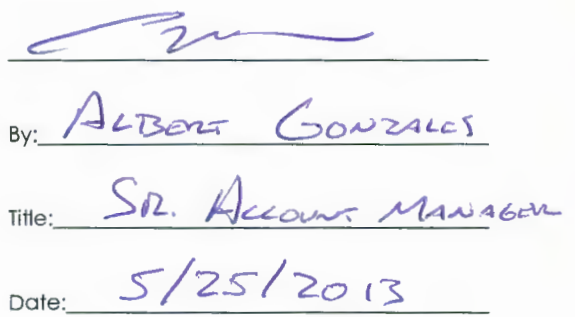 By: ALBERT GONZALES
Title: SR. ACCOUNT MANAGER
Date: 5/25/2013